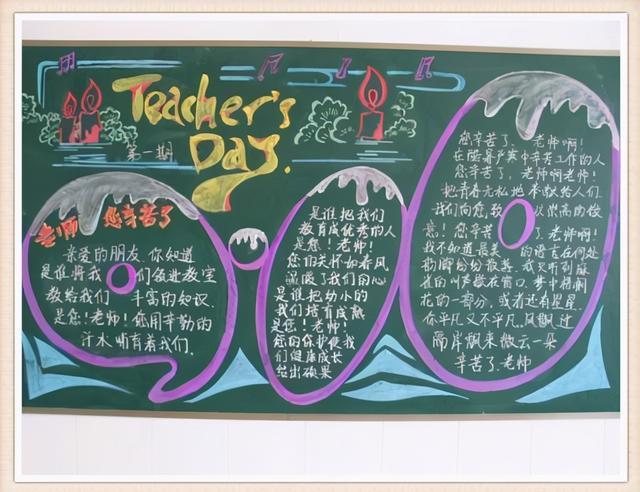 Teacher's
Day.
第一期
老师 您辛苦了
亲爱的朋友.你知道
是谁将我们领进教室
教给我们 丰富的知识
是您!老师!您用辛勤的
汗水哺育着我们.
是谁把我们
教育成优秀的人
是您!老师!
您的关怀如春风
温暖了我们的心
是谁把幼小的
我们培育成熟
是您!老师!
您的保护使我
们健康成长
结出硕果
您辛苦了、老师啊!
在隆暑严寒中辛苦工作的人
您辛苦了、老师啊老师!
把青春无私地奉献给人们.
我们向您致以崇高的敬
意!您辛苦了、老师啊!
我不知道最美的语言在何处
的叫声 在窗口.梦中梧桐
花的一部分,或者还有星星.
你平凡又不平凡,风飘过
隔岸飘来 做云一朵
辛苦了.老师